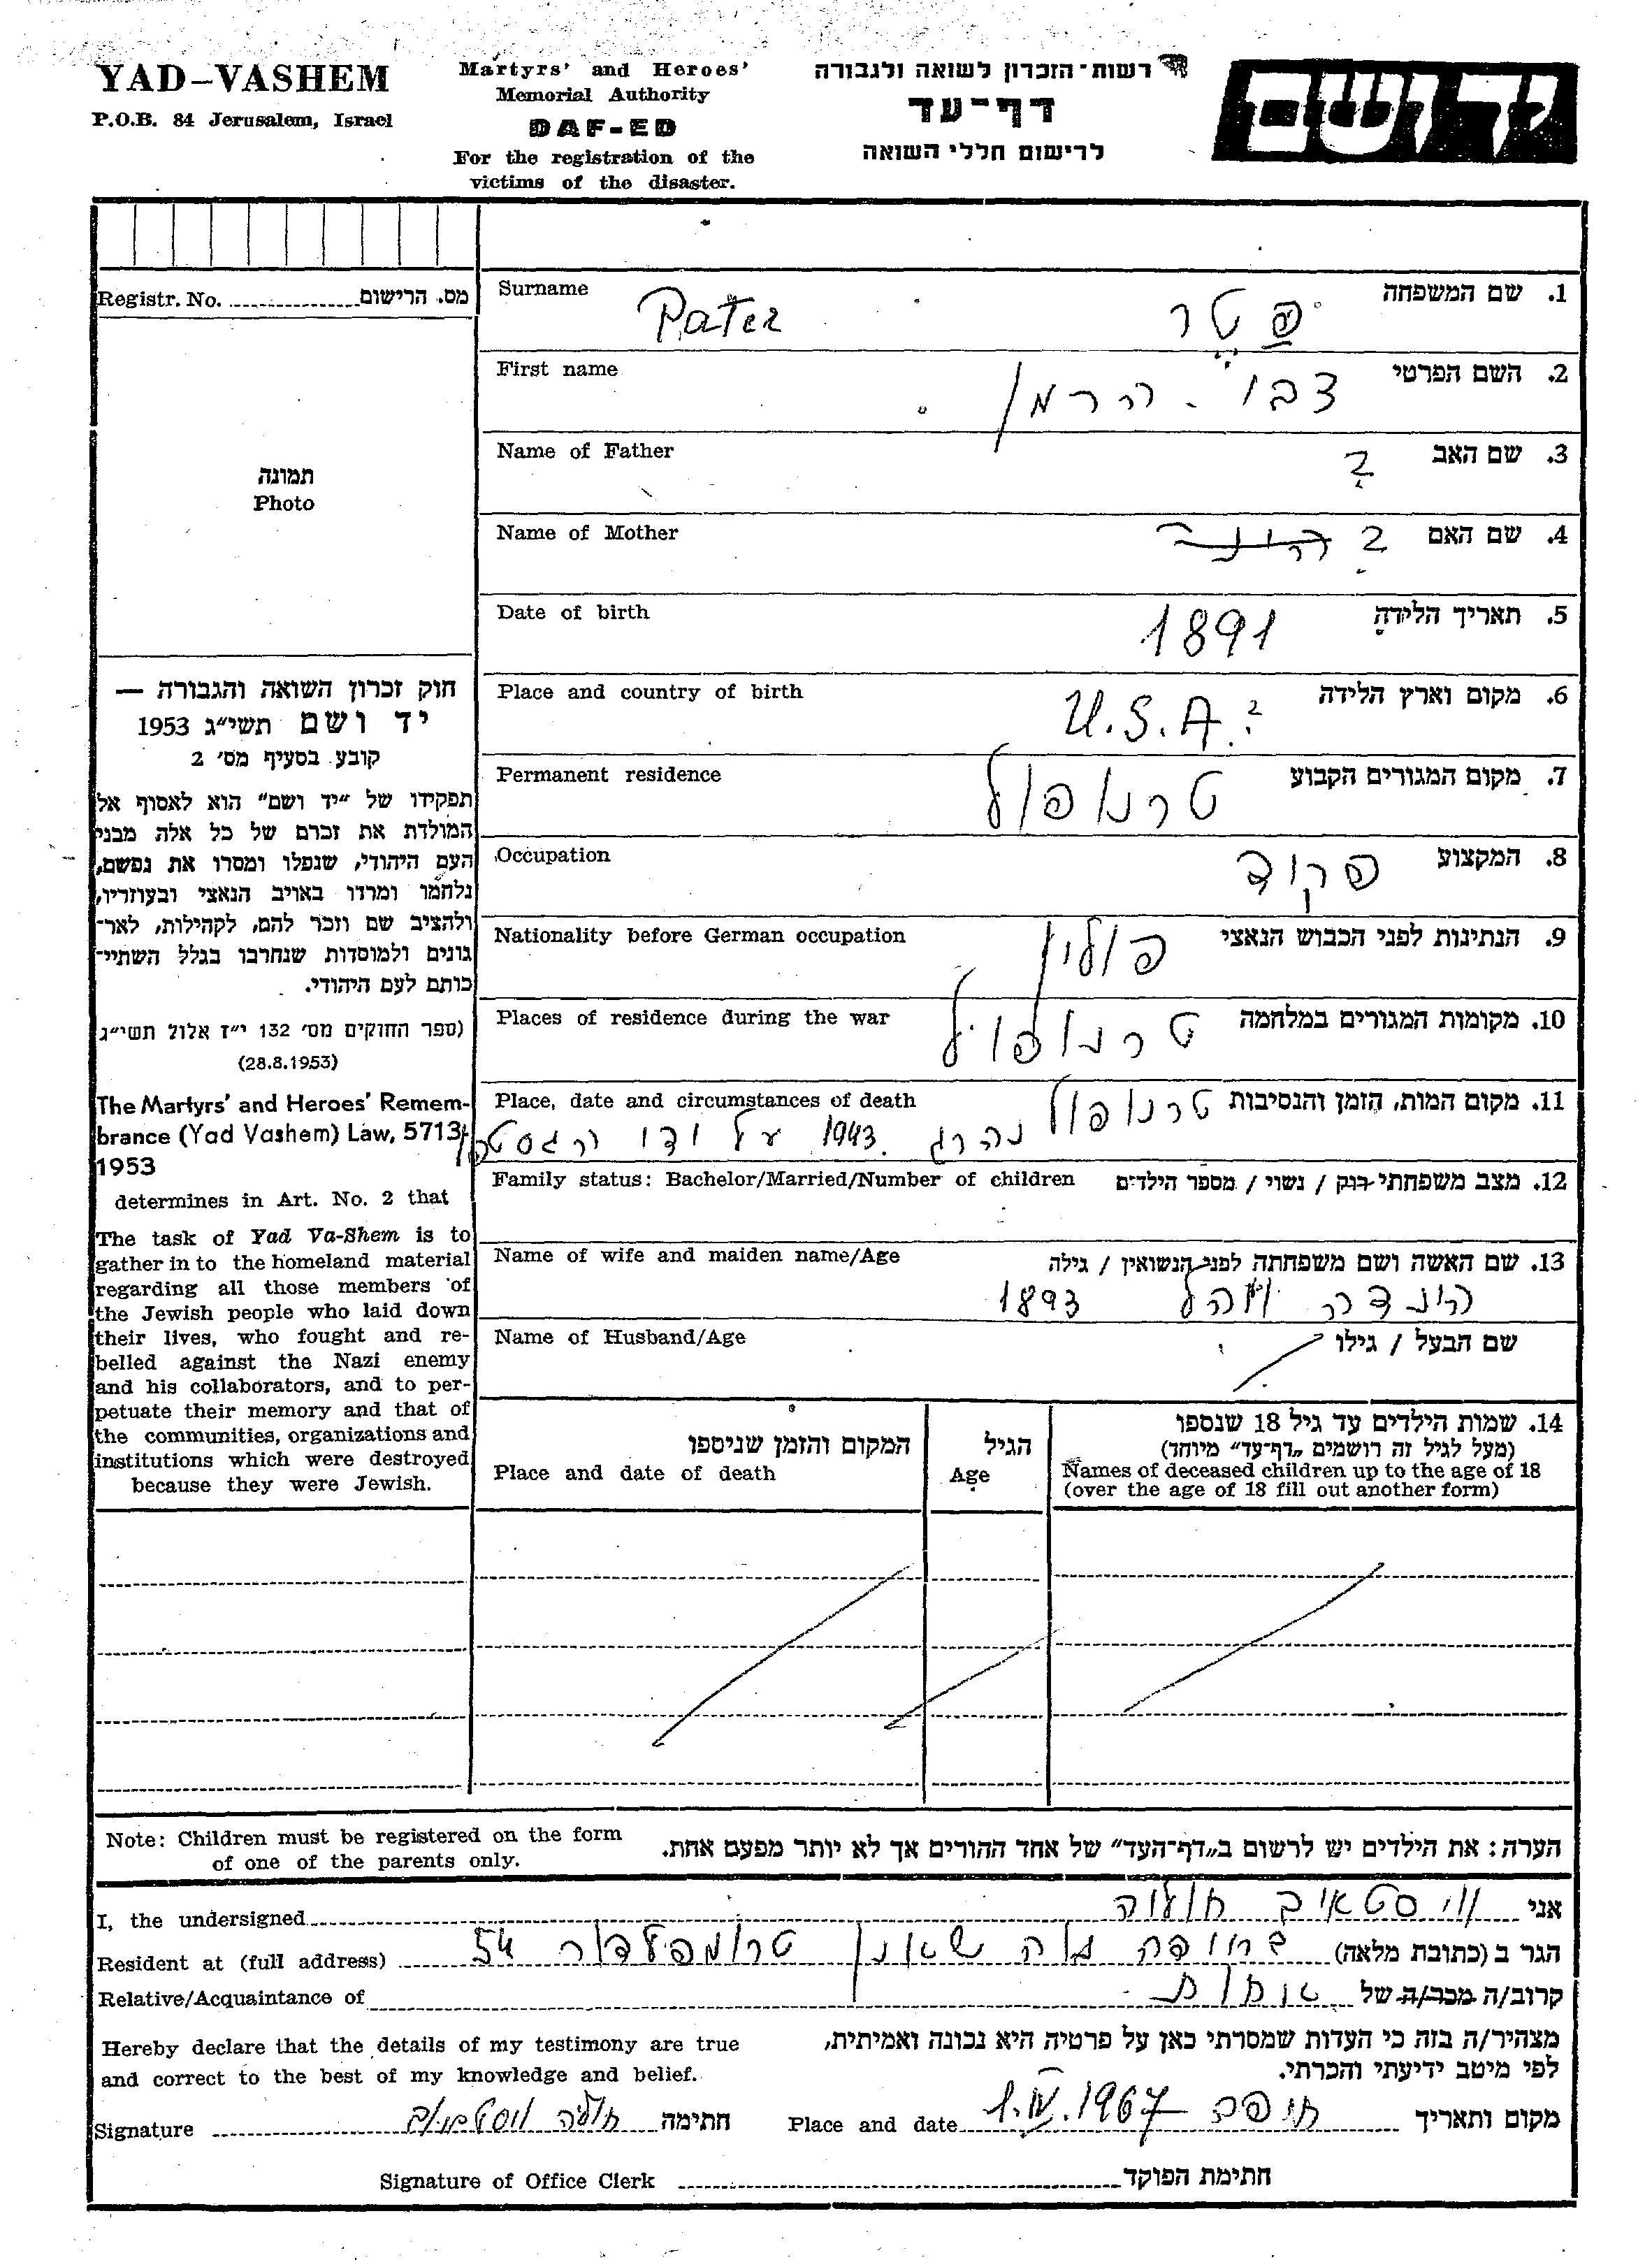 YAD-VASHEM
P.O.B. 84 Jerusalem, Israel
Martyrs' and Heroes'
Memorial Authority
DAF-ED
For the registration of the
victims of the disaster.
רשות-הזכרון לשואה ולגבורה
דף-עד
לרישום חללי השואה
יד ושם
Registr. No. מס. הרישום
תמונה
Photo
חוק זכרון השואה והגבורה —
יד ושם תשי״ג 1953
קובע בסעיף מס׳ 2
תפקידו של ״יד ושם״ הוא לאסוף אל
המולדת את זכרם של כל אלה מבני
העם היהודי, שנפלו ומסרו את נפשם,
נלחמו ומרדו באויב הנאצי ובעוזריו,
ולהציב שם וזכר להם, לקהילות, לאר-
גונים ולמוסדות שנחרבו בגלל השתיי-
כותם לעם היהודי.
(ספר החוקים מס׳ 132 י״ז אלול תשי״ג
(28.8.1953)
The Martyrs' and Heroes' Remem-
brance (Yad Vashem) Law, 5713-
1953
determines in Art. No. 2 that
The task of Yad Va-Shem is to
gather in to the homeland material
regarding all those members of
the Jewish people who laid down
their lives, who fought and re-
belled against the Nazi enemy
and his collaborators, and to per-
petuate their memory and that of
the communities, organizations and
institutions which were destroyed
because they were Jewish.
Surname 1. שם המשפחה
Pater פטר
First name 2. השם הפרטי
צבי - הרמן
Name of Father 3. שם האב
?
Name of Mother 4. שם האם
?
Date of birth 5. תאריך הלידה
1891
Place and country of birth 6. מקום וארץ הלידה
U.S.A. ?
Permanent residence 7. מקום המגורים הקבוע
טרנופול
Occupation 8. המקצוע
פקיד
Nationality before German occupation 9. הנתינות לפני הכבוש הנאצי
פולין
Places of residence during the war 10. מקומות המגורים במלחמה
טרנופול
Place, date and circumstances of death 11. מקום המות, הזמן והנסיבות
טרנופול
נהרג 1943 על ידי הגסטפו
Family status: Bachelor/Married/Number of children 12. מצב משפחתי רווק / נשוי / מספר הילדים
Name of wife and maiden name/Age 13. שם האשה ושם משפחתה לפני הנשואין / גילה
1893
Name of Husband/Age שם הבעל / גילו
14. שמות הילדים עד גיל 18 שנספו
(מעל לגיל זה רושמים ״דף-עד״ מיוחד)
Names of deceased children up to the age of 18
(over the age of 18 fill out another form)
הגיל
Age
המקום והזמן שניספו
Place and date of death
Note: Children must be registered on the form
of one of the parents only.
הערה: את הילדים יש לרשום ב״דף-העד״ של אחד ההורים אך לא יותר מפעם אחת.
I, the undersigned אני
Resident at (full address) הגר ב (כתובת מלאה) בחיפה נוה שאנן טרומפלדור 54
Relative/Acquaintance of קרוב/ה מכר/ה של אחות
Hereby declare that the details of my testimony are true
and correct to the best of my knowledge and belief.
מצהיר/ה בזה כי העדות שמסרתי כאן על פרטיה היא נכונה ואמיתית,
לפי מיטב ידיעתי והכרתי.
Signature חתימה
Place and date מקום ותאריך חיפה 1.IV.1967
Signature of Office Clerk חתימת הפוקד